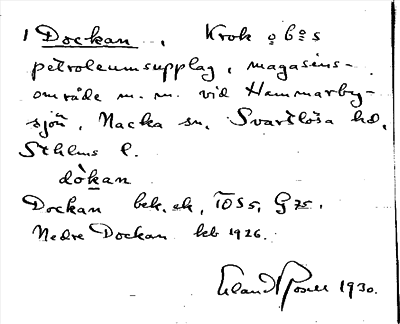 1 Dockan, Krok o b o s
petroleumsupplag, magasins-
område m. m. vid Hammarby-
sjön, Nacka sn, Svartlösa hd,
Sthlms l.
dòkan
Dockan bek. ek, TÖS5, G75.
Nedre Dockan keb 1926.
Erland Rosell 1930.